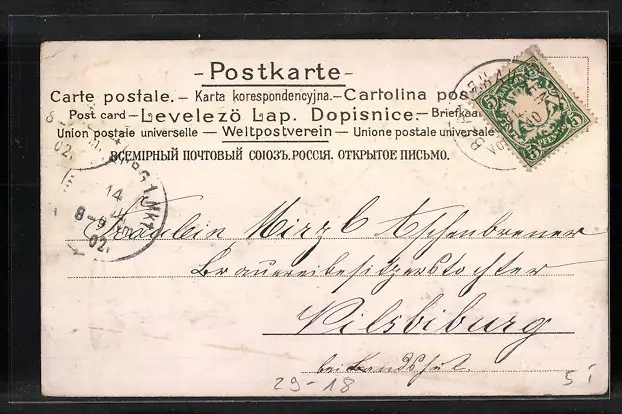 - Postkarte -
Carte postale. - Karta korespondencyjna. - Cartolina pos
Post card - Levelezö Lap. Dopisnice. - Briefkaa
Union postale universelle - Weltpostverein - Unione postale universale
ВСЕМІРНЫЙ ПОЧТОВЫЙ СОЮЗЪ. РОССІЯ. ОТКРЫТОЕ ПИСЬМО.
02.
14
8-9
02.
5
Fräulein Mirzl Aschenbrener
Brauereibesitzerstochter
Vilsbiburg
bei Landshut
29-18
5